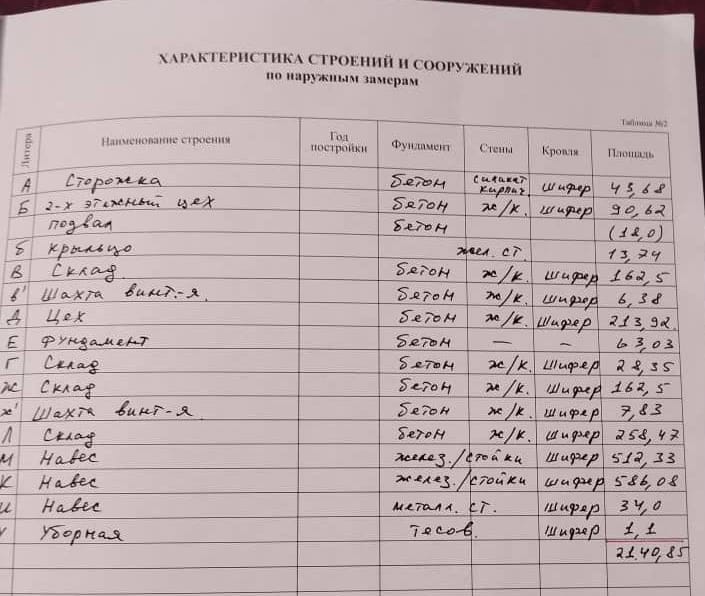 ХАРАКТЕРИСТИКА СТРОЕНИЙ И СООРУЖЕНИЙ
по наружным замерам
Таблица №2
Литера Наименование строения Год постройки Фундамент Стены Кровля Площадь
А Сторожка бетон силикат кирпич. шифер 43,68
Б 2-х этажный цех бетон ж/к. шифер 90,62
подвал бетон (18,0)
б крыльцо жел. ст. 13,74
В Склад бетон ж/к. шифер 162,5
в' Шахта винт.-я. бетон ж/к. шифер 6,38
Д Цех бетон ж/к. шифер 213,92.
Е Фундамент бетон — – 63,03
Г Склад бетон ж/к. шифер 28,35
Ж Склад бетон ж/к. шифер 162,5
ж' Шахта винт-я. бетон ж/к. шифер 7,83
Л Склад бетон ж/к. шифер 258,47
М Навес желез./стойки шифер 512,33
К Навес желез./стойки шифер 586,08
И Навес металл. ст. шифер 34,0
Уборная тесов. шифер 1,1
2140,85